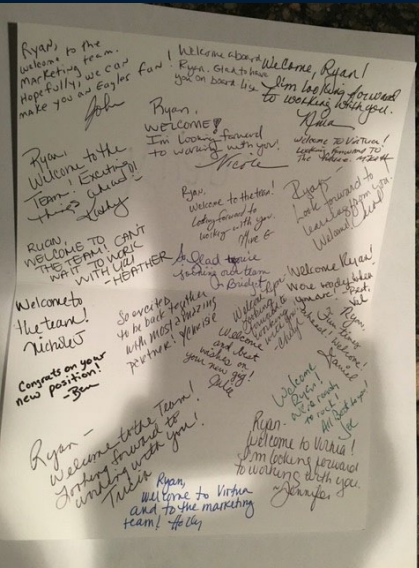 Ryan,
welcome to the
Marketing team.
Hopefully, we can
make you an Eagles fan!
John
Welcome aboard
Ryan. Glad to have
you on board
Welcome, Ryan!
I'm looking forward
to working with you.
Ryan,
WELCOME!
I'm looking forward
to working with you!
Nicole
Welcome to Virtua!
Looking forward to
the future
Ryan,
Welcome to the
TEAM! Exciting
things ahead!
Kathy
Ryan,
Welcome to the team!
Looking forward to
working with you.
Mike E
Ryan,
Look forward to
learning from you!
Welcome!
RYAN,
WELCOME TO
THE TEAM! CAN'T
WAIT TO WORK
WITH YOU!
-HEATHER
So glad you're
joining our team
Bridget
Welcome Ryan!
Welcome to
the team!
So excited
to be back together
with most amazing
partner!
Welcome Ryan,
looking
forward to
working
Welcome
and best
wishes on
your new gig!
Julie
Congrats on your
new position!
-Ben
Welcome
Ryan!
ready
to rock!
All Best to you!
Joe
Ryan -
Welcome to the Team!
Looking forward to
working with you!
Tricia
Ryan-
Welcome to Virtua!
I'm looking forward
to working with you.
~Jennifer
Ryan,
welcome to Virtua
and to the marketing
team! Holly